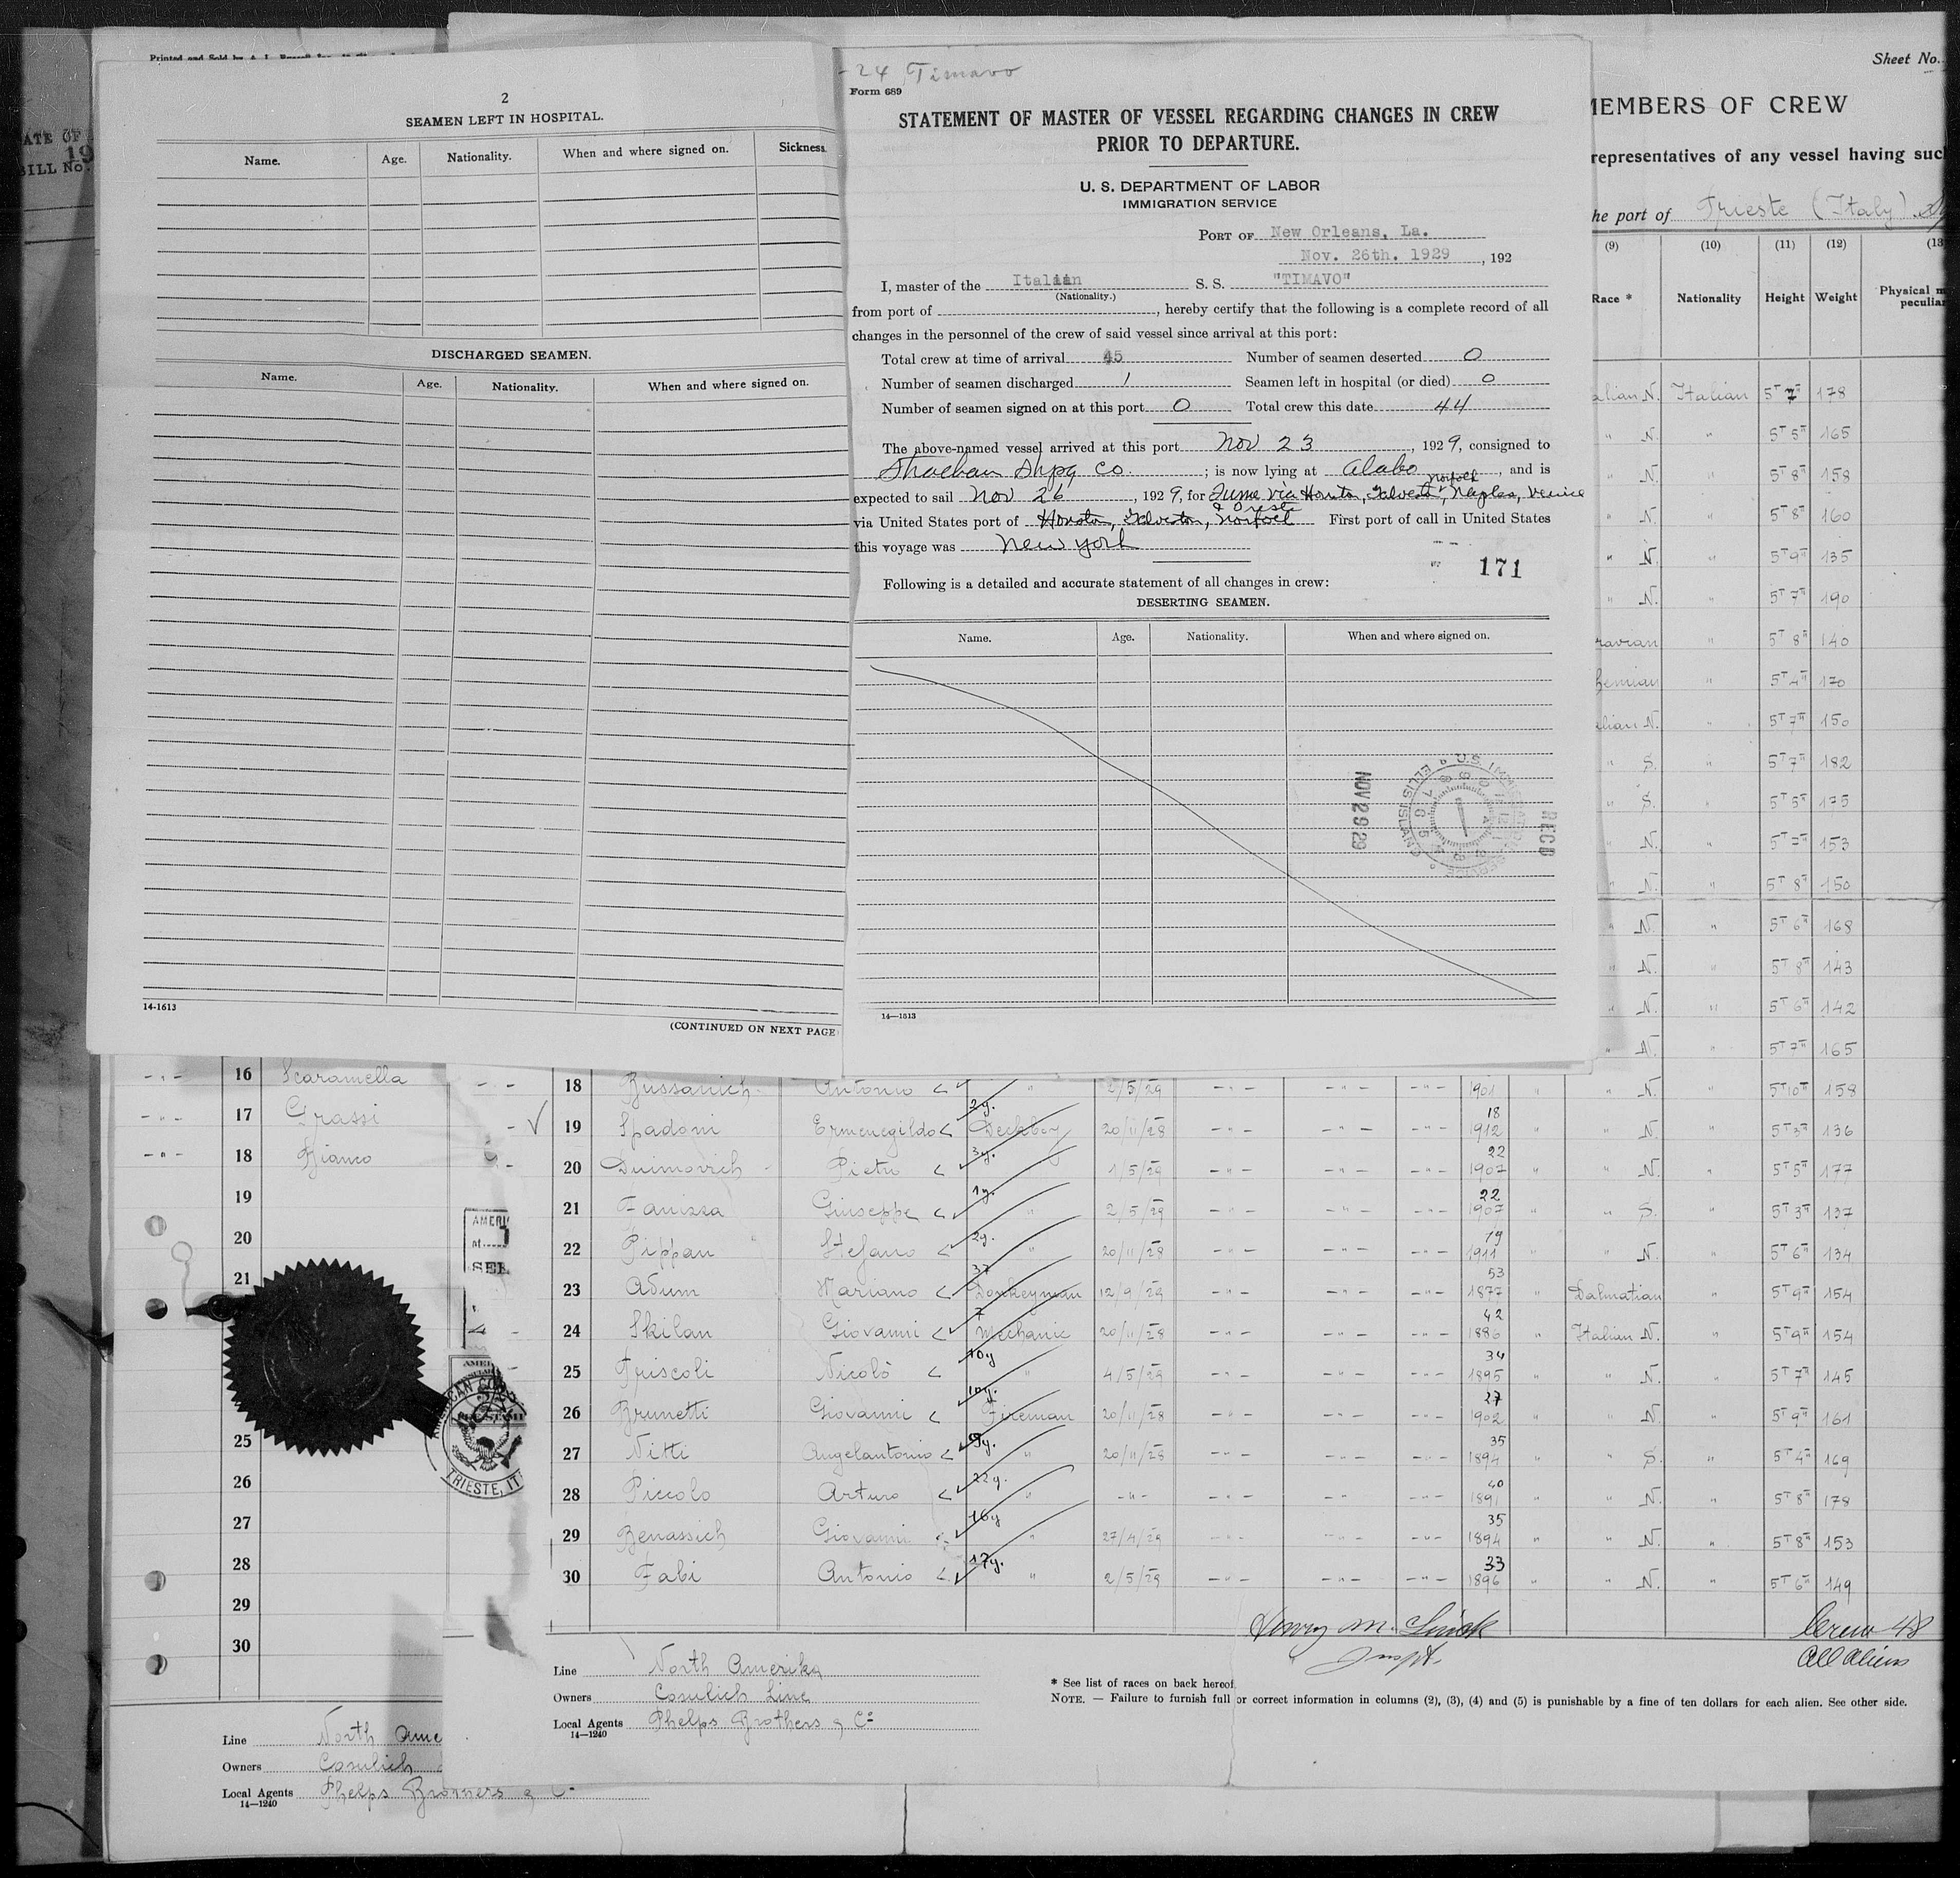 Sheet No.
Printed and Sold by
MEMBERS OF CREW
representatives of any vessel having such
the port of Trieste (Italy)
ATE OF
BILL No.
19
2
SEAMEN LEFT IN HOSPITAL.
Name. Age. Nationality. When and where signed on. Sickness
DISCHARGED SEAMEN.
Name. Age. Nationality. When and where signed on.
14-1613
(CONTINUED ON NEXT PAGE
-24 Timavo
Form 689
STATEMENT OF MASTER OF VESSEL REGARDING CHANGES IN CREW
PRIOR TO DEPARTURE.
U. S. DEPARTMENT OF LABOR
IMMIGRATION SERVICE
PORT OF New Orleans, La.
Nov. 26th. 1929, 192
I, master of the Italian S. S. "TIMAVO"
(Nationality.)
from port of , hereby certify that the following is a complete record of all
changes in the personnel of the crew of said vessel since arrival at this port:
Total crew at time of arrival 45 Number of seamen deserted 0
Number of seamen discharged 1 Seamen left in hospital (or died) 0
Number of seamen signed on at this port 0 Total crew this date 44
The above-named vessel arrived at this port Nov 23, 1929, consigned to
Strachan Shpg Co. ; is now lying at Alabo, and is
Norfolk
expected to sail Nov 26, 1929, for Fiume via Houston, Galveston, Naples, Venice
& Trieste
via United States port of Houston, Galveston, Norfolk First port of call in United States
this voyage was New York
171
Following is a detailed and accurate statement of all changes in crew:
DESERTING SEAMEN.
Name. Age. Nationality. When and where signed on.
NOV 29 29
U.S. IMMIGRATION SERVICE ELLIS ISLAND
RECD
14—1613
(9) (10) (11) (12) (13
Race * Nationality Height Weight Physical m
peculiar
alian N. Italian 5 7 178
" N. " 5 5 165
" N. " 5 8 158
" N. " 5 8 160
" N. " 5 9 135
" N. " 5 7 190
ravian " 5 8 140
hemian " 5 4 170
alian N. " 5 7 150
" S. " 5 7 182
" S. " 5 5 175
" N. " 5 7 153
" N. " 5 8 150
" N. " 5 6 168
" N. " 5 8 143
" N. " 5 6 142
" N. " 5 7 165
16 Scaramella
17 Grassi
18 Bianco
19
20
21
25
26
27
28
29
30
18 Bussanich Antonio " 2/5/29 1901 " " N. 5 10 158
19 Spadoni Ermenegildo 2y. Deckboy 20/11/28 18 1912 " " N. 5 3 136
20 Duimovich Pietro 3y. 1/5/29 22 1907 " " N. " 5 5 177
21 Fanizza Giuseppe 1y. " 2/5/29 22 1907 " " S. " 5 3 137
22 Pippan Stefano 2y. " 20/11/28 19 1911 " " N. " 5 6 134
23 Adum Mariano 37 Donkeyman 12/9/29 53 1877 " Dalmatian " 5 9 154
24 Skilan Giovanni 7 Mechanic 20/11/28 42 1886 " Italian N. " 5 9 154
25 Friscoli Nicolò 10y " 4/5/29 34 1895 " " N. " 5 7 145
26 Brunetti Giovanni 10y. Fireman 20/11/28 27 1902 " " N. " 5 9 161
27 Nitti Angelantonio 9y. " 20/11/28 35 1894 " " S. " 5 4 169
28 Piccolo Arturo 22y. " - " - 40 1891 " " N. " 5 8 178
29 Benassich Giovanni 16y " 27/4/29 35 1894 " " N. " 5 8 153
30 Fabi Antonio 17y. " 2/5/29 33 1896 " " N. " 5 6 149
AMERICAN CON
TRIESTE, IT
Henry M.
Inspt.
Crew 48
all aliens
Line North Amerika
Owners Cosulich Line
Local Agents Phelps Brothers & Co
14—1240
* See list of races on back hereof
NOTE. — Failure to furnish full or correct information in columns (2), (3), (4) and (5) is punishable by a fine of ten dollars for each alien. See other side.
Line North Ame
Owners Cosulich
Local Agents Phelps Brothers & C
14—1240